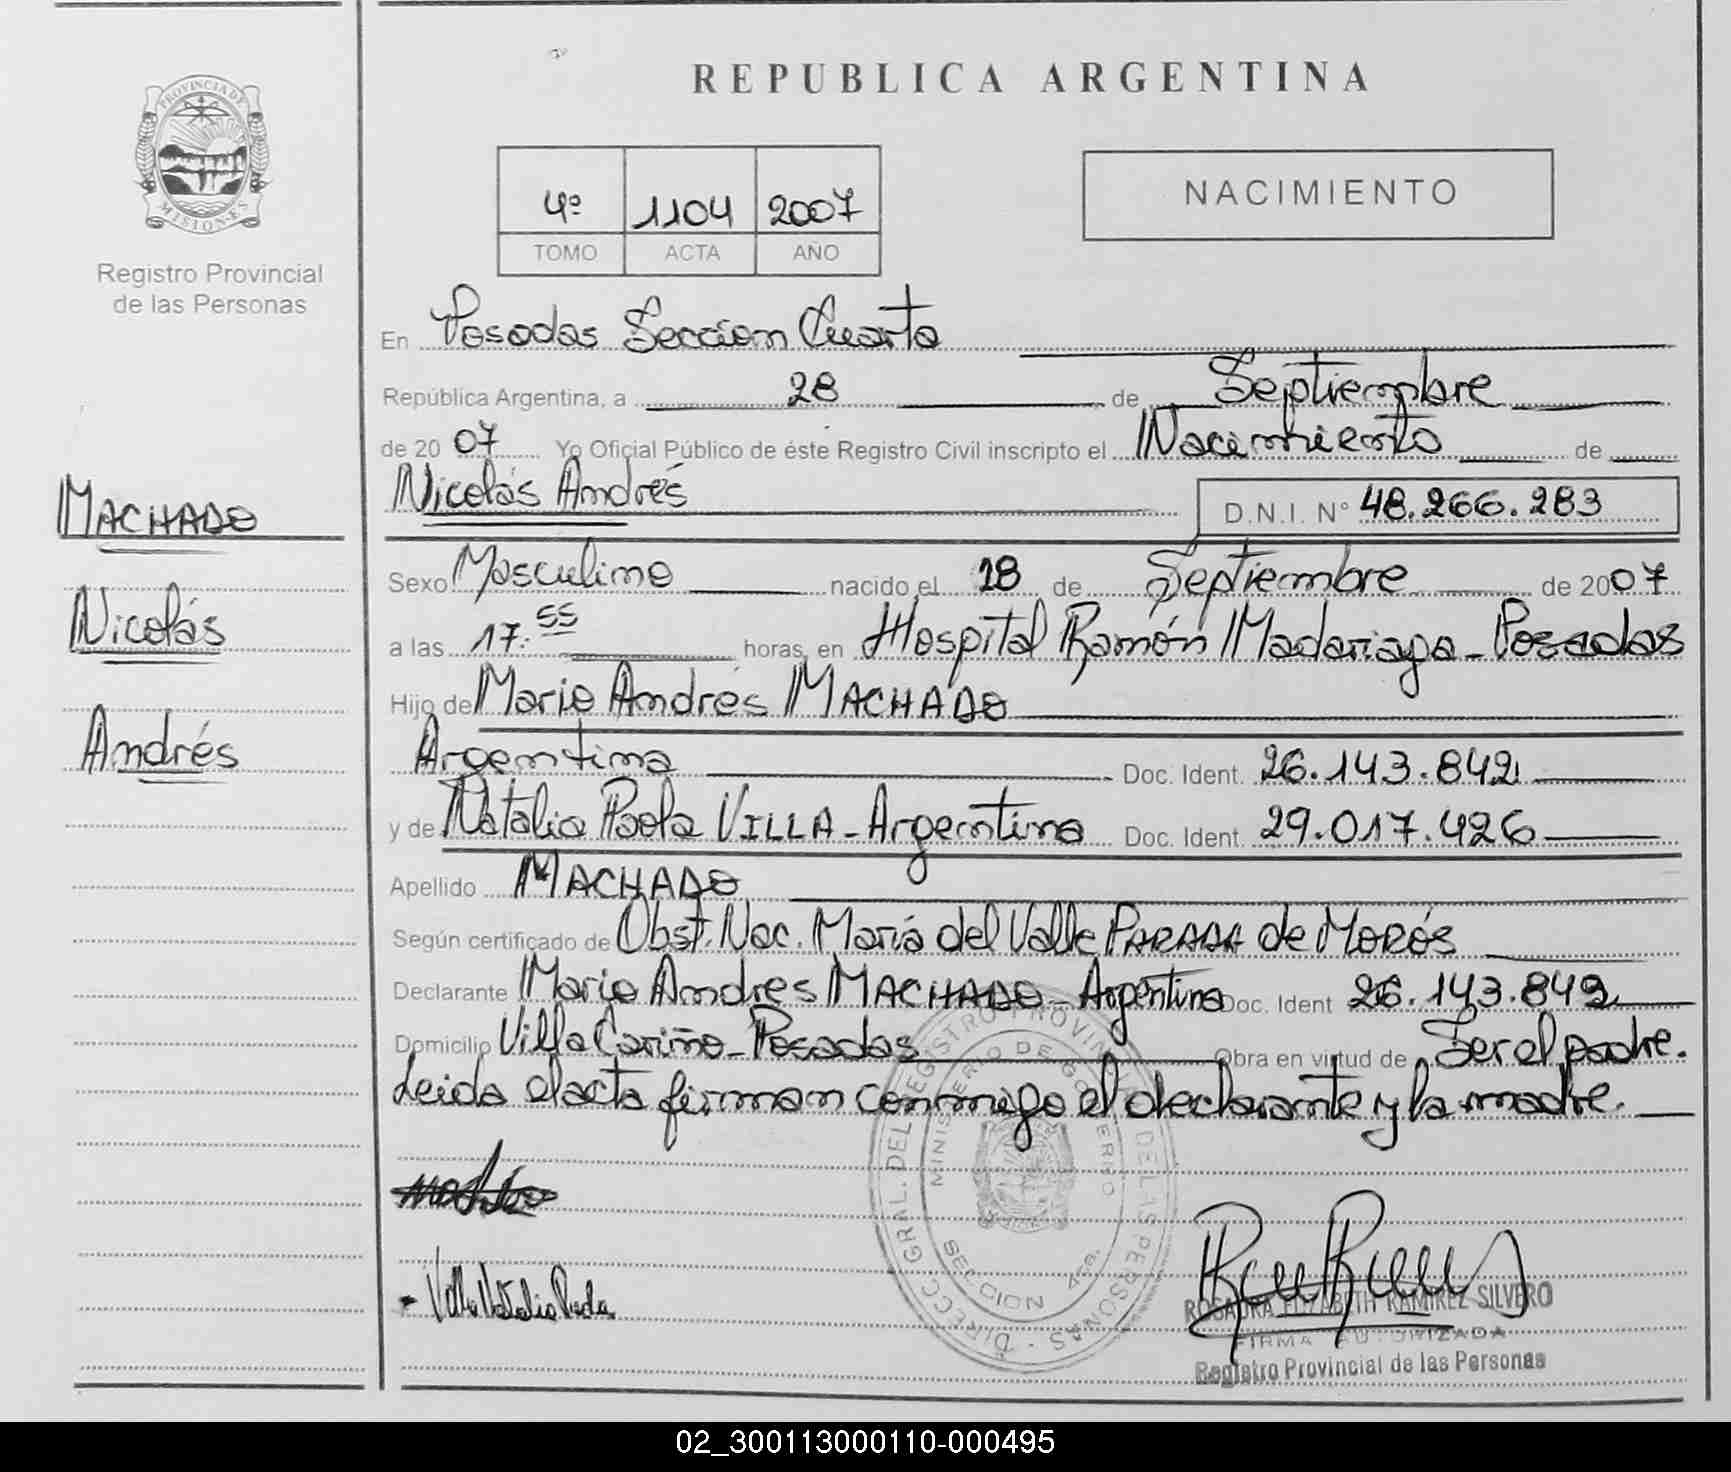 REPUBLICA ARGENTINA
PROVINCIA DE MISIONES
Registro Provincial
de las Personas
4º 1104 2007
TOMO ACTA AÑO
NACIMIENTO
En Posadas Sección Cuarta
República Argentina, a 28 de Septiembre
de 2007 Yo Oficial Público de éste Registro Civil inscripto el Nacimiento de
Nicolás Andrés D.N.I. Nº 48.266.283
MACHADO
Nicolás
Andrés
Sexo Masculino nacido el 18 de Septiembre de 2007
a las 17:55 horas, en Hospital Ramón Madariaga - Posadas
Hijo de Mario Andrés MACHADO
Argentina Doc. Ident. 26.143.842
y de Natalia Paola VILLA - Argentina Doc. Ident. 29.017.426
Apellido MACHADO
Según certificado de Obst. Nac. María del Valle PARADA de MORÓS
Declarante Mario Andres MACHADO - Argentina Doc. Ident 26.143.842
Domicilio Villa Cariño - Posadas Obra en virtud de Ser el padre.
Leida el acta firman conmigo el declarante y la madre.
DIRECC. GRAL. DEL REGISTRO PROVINCIAL DE LAS PERSONAS
MINISTERIO DE GOBIERNO
SECCION 4ta.
Villa Natalia Paola
ROSANDRA ELIZABETH RAMIREZ SILVERO
FIRMA AUTORIZADA
Registro Provincial de las Personas
02_300113000110-000495